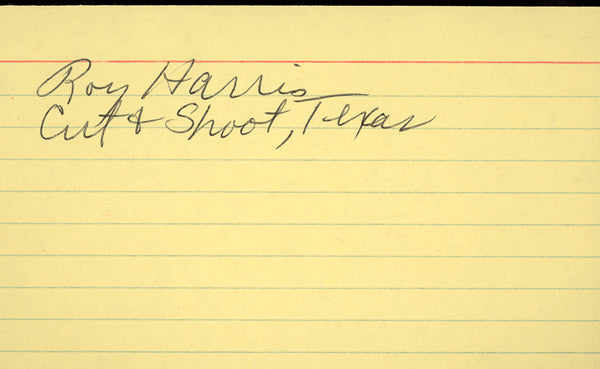 Roy Harris
Cut & Shoot, Texas